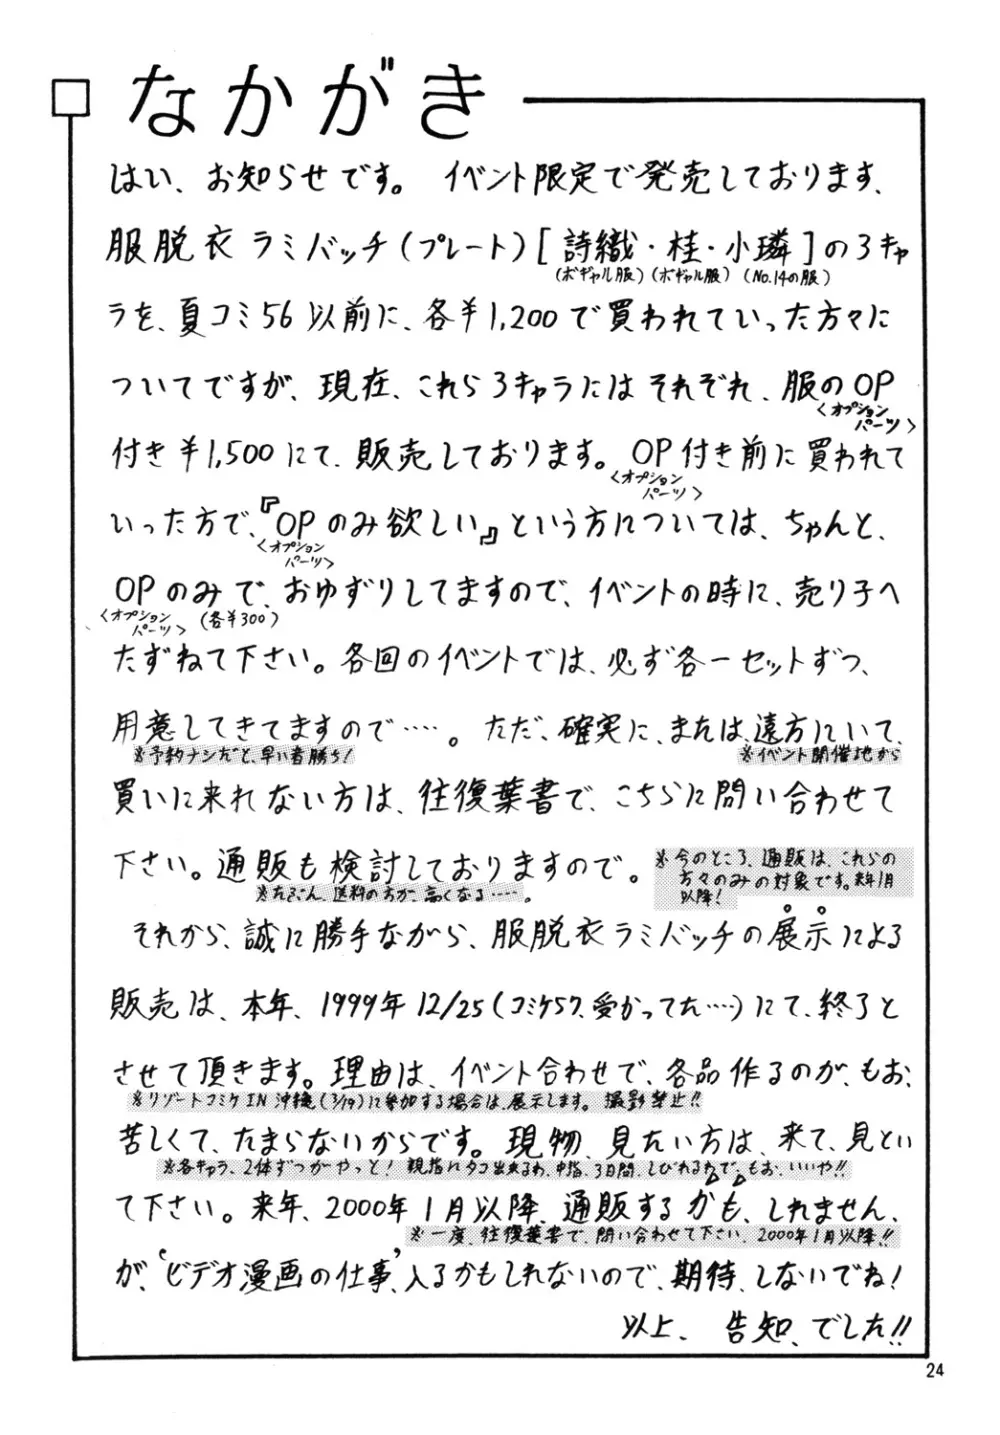 なかがき
はい、お知らせです。 イベント限定で発売しております、
服脱衣ラミバッチ(プレート)[詩織・桂・小璘]の3キャ
(ボギャル服)(ボギャル服)(No.14の服)
ラを、夏コミ56以前に、各¥1,200で買われていった方々に
ついてですが、現在、これら3キャラにはそれぞれ、服のOP
<オプションパーツ>
付き¥1,500にて、販売しております。OP付き前に買われて
<オプションパーツ>
いった方で、『OPのみ欲しい』という方については、ちゃんと、
<オプションパーツ>
OPのみで、おゆずりしてますので、イベントの時に、売り子へ
<オプションパーツ>(各¥300)
たずねて下さい。各回のイベントでは、必ず各一セットずつ、
用意してきてますので‥‥。ただ、確実に、または、遠方にいて、
※予約ナシだと、早い者勝ち! ※イベント開催地から
買いに来れない方は、往復葉書で、こちらに問い合わせて
下さい。通販も検討しておりますので。
※今のところ、通販は、これらの
方々のみの対象です。来年1月
以降!
※たぶん、送料の方が、高くなる‥‥‥。
それから、誠に勝手ながら、服脱衣ラミバッチの展示による
販売は、本年、1999年12/25(コミケ57、受かってた‥‥)にて、終了と
させて頂きます。理由は、イベント合わせで、各品作るのが、もお、
※リゾートコミケIN沖縄(3/19)に参加する場合は、展示します。 撮影禁止!!
苦しくて、たまらないからです。現物、見たい方は、来て、見とい
※各キャラ、2体ずつがやっと! 親指にタコ出来るわ、中指、3日間、しびれるわで、もお、いいや!!
て下さい。来年、2000年1月以降、通販するかも、しれません、
※一度、往復葉書で、問い合わせて下さい、2000年1月以降!!
が、'ビデオ漫画の仕事'、入るかもしれないので、期待、しないでね!
以上、 告知、でした!!
24